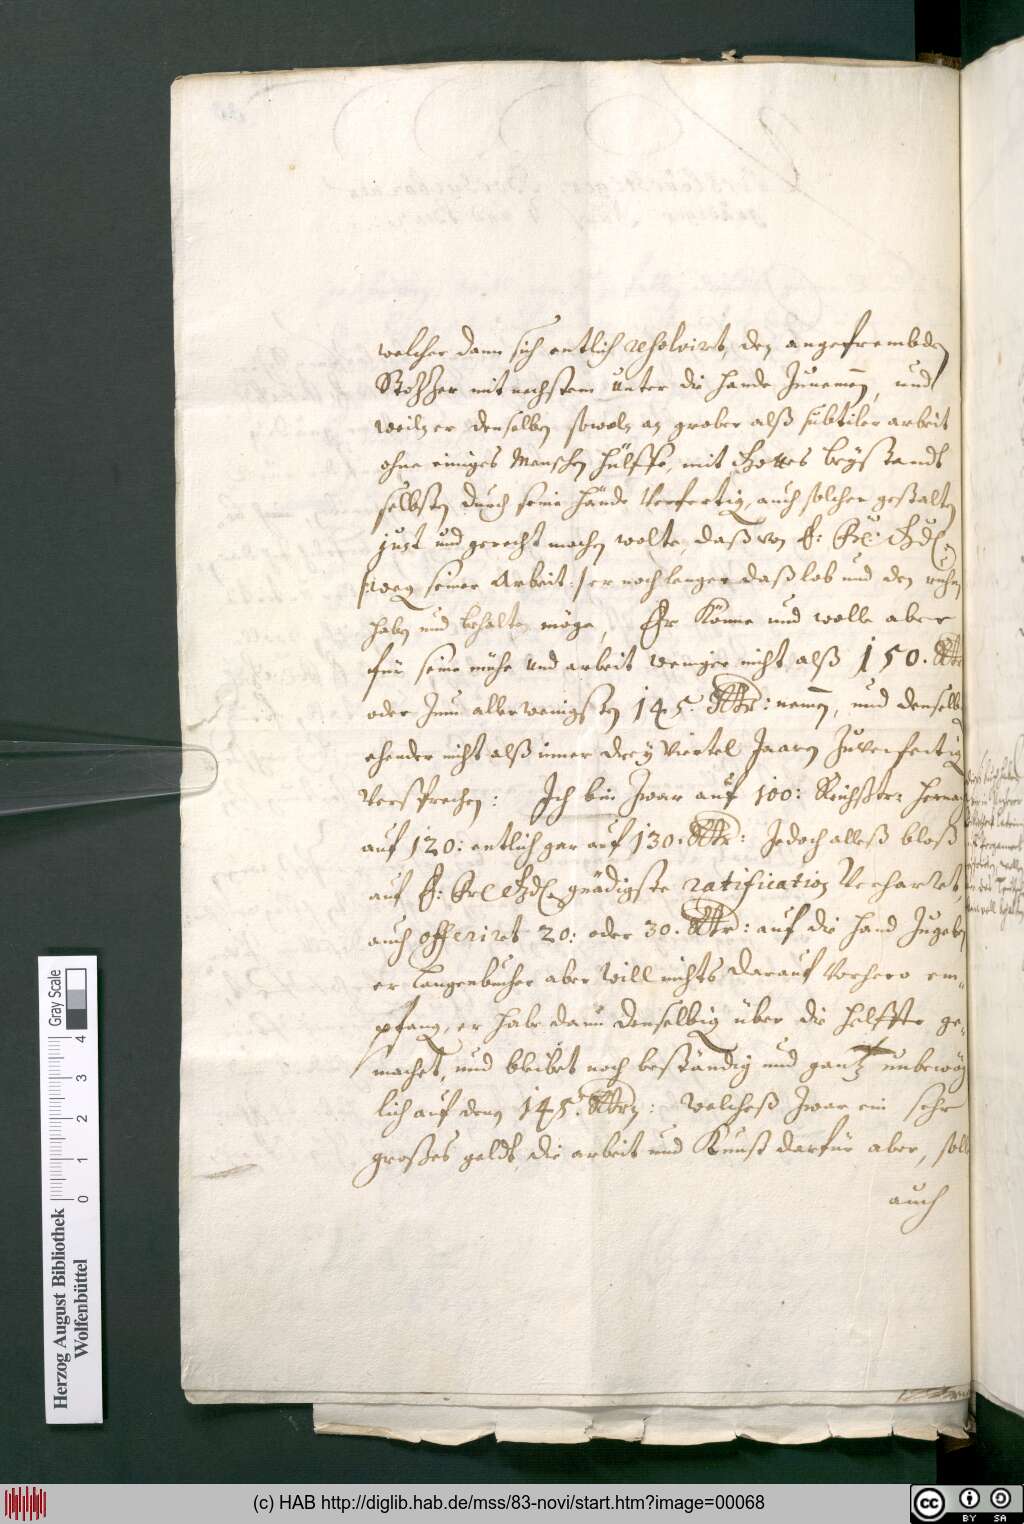 welcher dann sich entlich resolviret, den angefrembden
mit nechstem unter die Hande Zunemen, und
weiln er denselben sowoln an grober alß subtiler arbeit
ohne einiges Menschen hülffe, mit Gottes beystandt
selbsten durch seine Hände verfertigen, auch solcher gestalten
just und gerecht machen wolte, daß von E: Frl: Gd:
wegen seiner Arbeit :/ er noch lenger daß lob und den ruhm
haben und behalten möge, Er Könne und wolle aber
für seine mühe und arbeit weniger nicht alß 150. Rthr
oder Zum allerwenigsten 145. Rthr: nemen, und denselben
ehender nicht alß inner drey viertel Jaaren Zuverfertigen
versprechen: Ich bin Zwar auf 100: Reichsthr hernach
auf 120: entlich gar auf 130. Rthr: Jedoch alleß bloß
auf E: Frl Gd: gnädigste ratification verharret,
auch offeriret 20: oder 30. Rthr: auf die hand Zugeben
er Langenbucher aber will nichts darauf vorhero em-
pfangen, er habe dann denselbigen über die helffte ge-
machet, und bleibet noch beständig und gantz unbeweg
lich auf denen 145. Rthr: welcheß Zwar ein sehr
großes geldt die arbeit und Kunst darfür aber, soll
auch
Herzog August Bibliothek
Wolfenbüttel
Gray Scale
0 1 2 3 4
(c) HAB http://diglib.hab.de/mss/83-novi/start.htm?image=00068
cc BY SA